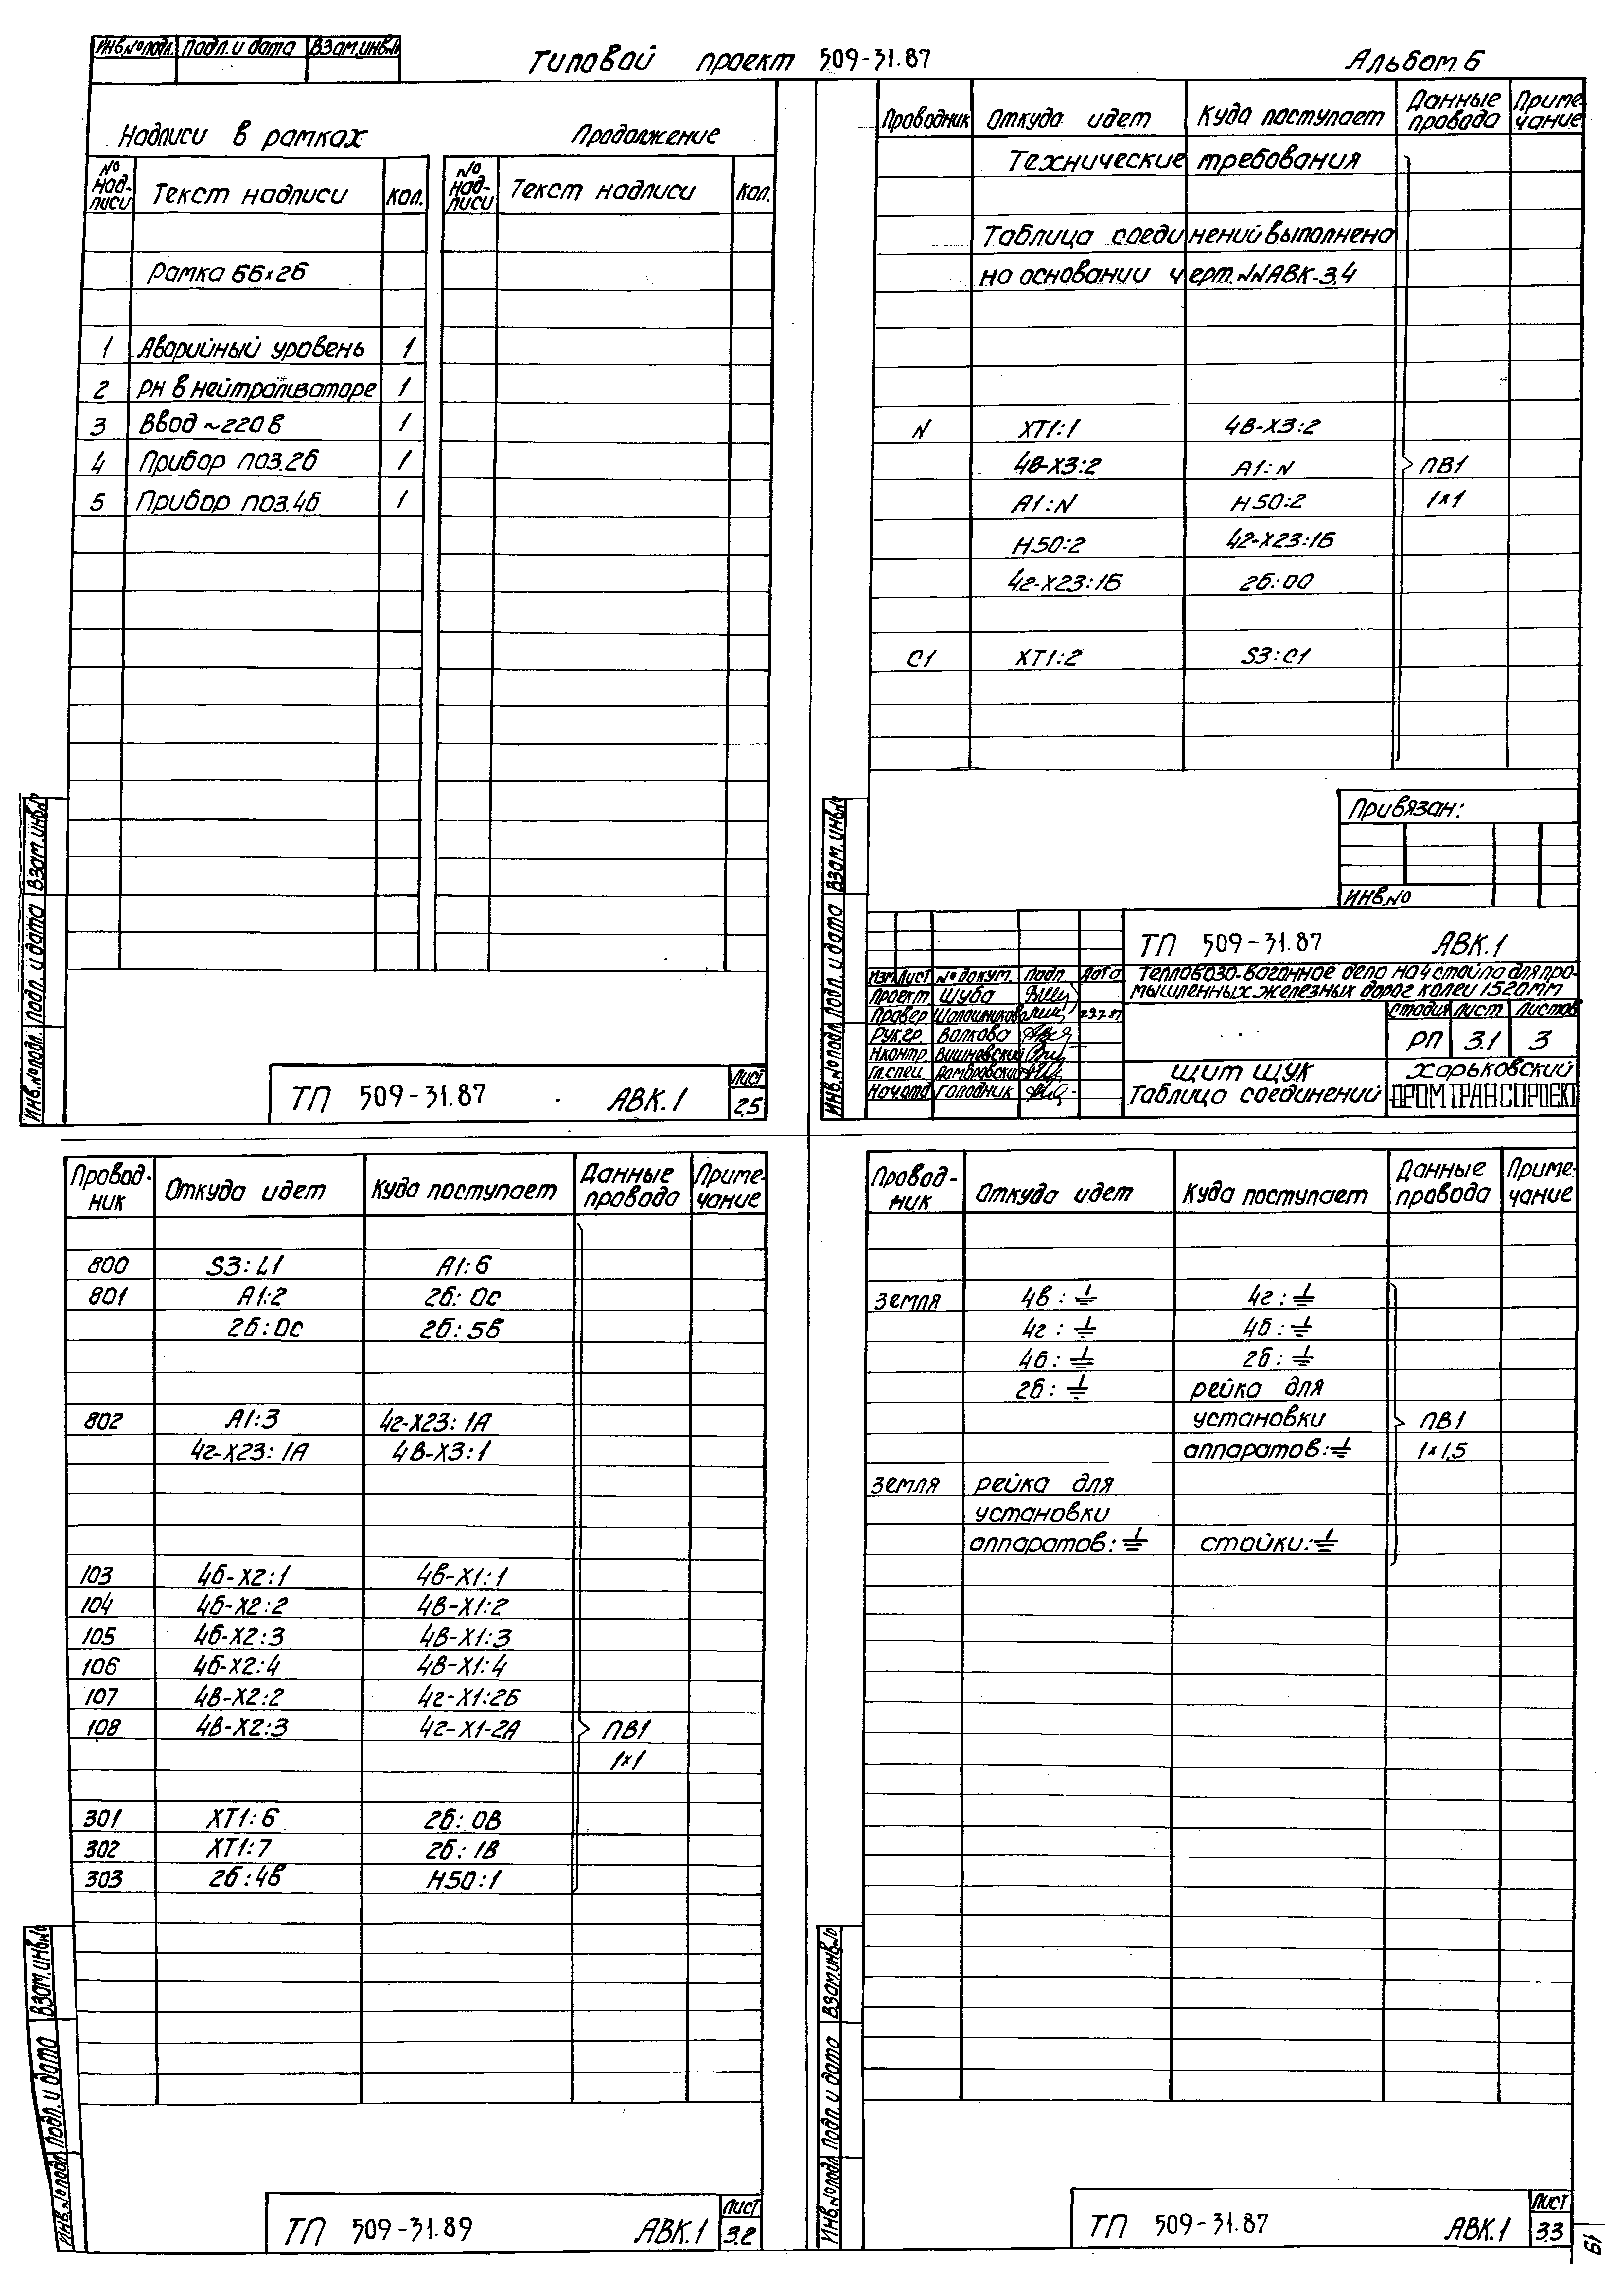 Инв.№подл. Подл. и дата Взам.инв.№
Типовой проект 509-31.87
Альбом 6
Надписи в рамках
Продолжение
№ надписи Текст надписи Кол. № надписи Текст надписи Кол.
Рамка 66х26
1 Аварийный уровень 1
2 рН в нейтрализаторе 1
3 Ввод ~220В 1
4 Прибор поз.2б 1
5 Прибор поз.4б 1
Взам.инв.№
Подл. и дата
Инв.№подл.
ТП 509-31.87 АВК.1
Лист
2.5
Проводник Откуда идет Куда поступает Данные провода Примечание
Технические требования
Таблица соединений выполнена
на основании черт.№№АВК-3,4
N ХТ1:1 4в-Х3:2
4в-Х3:2 А1:N ПВ1
А1:N Н50:2 1х1
Н50:2 4г-Х23:1Б
4г-Х23:1Б 2б:00
С1 ХТ1:2 S3:С1
Привязан:
Инв.№
Взам.инв.№
Подл. и дата
Инв.№подл.
ТП 509-31.87 АВК.1
Изм. Лист № докум. Подп. Дата
Тепловозо-вагонное депо на 4 стойла для про-
мышленных железных дорог колеи 1520мм
Проект. Шуба
Провер. Шапошникова 23.7.87
Рук.гр. Волкова
Н.контр. Вишневский
Гл.спец. Домбровский
Нач.отд. Голодник
Стадия Лист Листов
РП 3.1 3
Щит ЩУК
Таблица соединений
Харьковский
ПРОМТРАНСПРОЕКТ
Провод-
ник Откуда идет Куда поступает Данные
провода Приме-
чание
800 S3:L1 А1:6
801 А1:2 2б:0С
2б:0С 2б:5В
802 А1:3 4г-Х23:1А
4г-Х23:1А 4В-Х3:1
103 4б-Х2:1 4в-Х1:1
104 4б-Х2:2 4В-Х1:2
105 4б-Х2:3 4В-Х1:3
106 4б-Х2:4 4В-Х1:4
107 4В-Х2:2 4г-Х1:2Б
108 4В-Х2:3 4г-Х1-2А ПВ1
1х1
301 ХТ1:6 2б:0В
302 ХТ1:7 2б:1В
303 2б:4В Н50:1
Взам.инв.№
Подл. и дата
Инв.№подл.
ТП 509-31.89 АВК.1
Лист
3.2
Провод-
ник Откуда идет Куда поступает Данные
провода Приме-
чание
земля 4в:⏚ 4г:⏚
4г:⏚ 4б:⏚
4б:⏚ 2б:⏚
2б:⏚ рейка для
установки ПВ1
аппаратов:⏚ 1х1,5
земля рейка для
установки
аппаратов:⏚ стойки:⏚
Взам.инв.№
Подл. и дата
Инв.№подл.
ТП 509-31.87 АВК.1
Лист
3.3
19